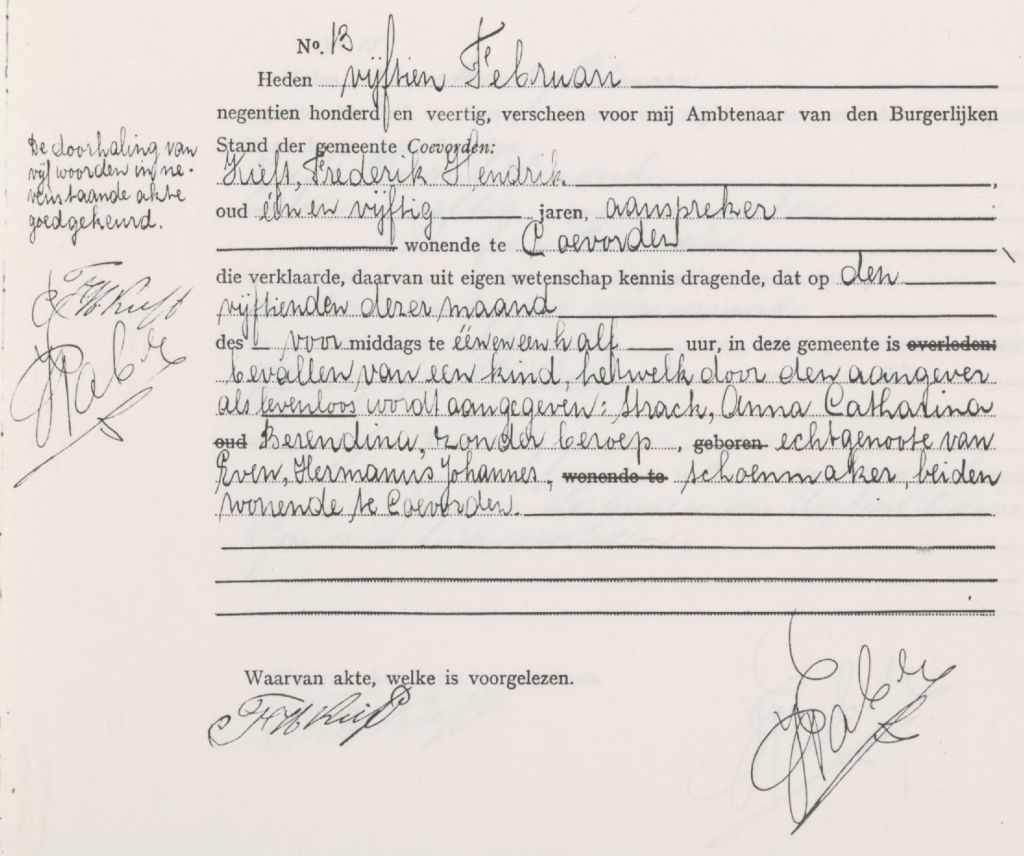 No. 13
Heden vijftien Februari
negentien honderd en veertig, verscheen voor mij Ambtenaar van den Burgerlijken
Stand der gemeente Coevorden:
Kieft, Frederik Hendrik,
oud één en vijftig jaren, aanspreker
wonende te Coevorden
die verklaarde, daarvan uit eigen wetenschap kennis dragende, dat op den
vijftienden dezer maand
des voor middags te één en een half uur, in deze gemeente is overleden:
bevallen van een kind, hetwelk door den aangever
als levenloos wordt aangegeven: Strack, Anna Catharina
oud Berendina, zonder beroep, geboren echtgenoote van
Even, Hermanus Johannes, wonende te schoenmaker, beiden
wonende te Coevorden.
De doorhaling van
vijf woorden in ne-
venstaande akte
goedgekeurd.
F H Kieft
Faber
Waarvan akte, welke is voorgelezen.
F H Kieft
Faber